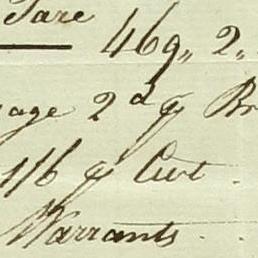 Tare
469,, 2,,
age 2d ⅌ B
1/6 ⅌ Cwt.
Warrants